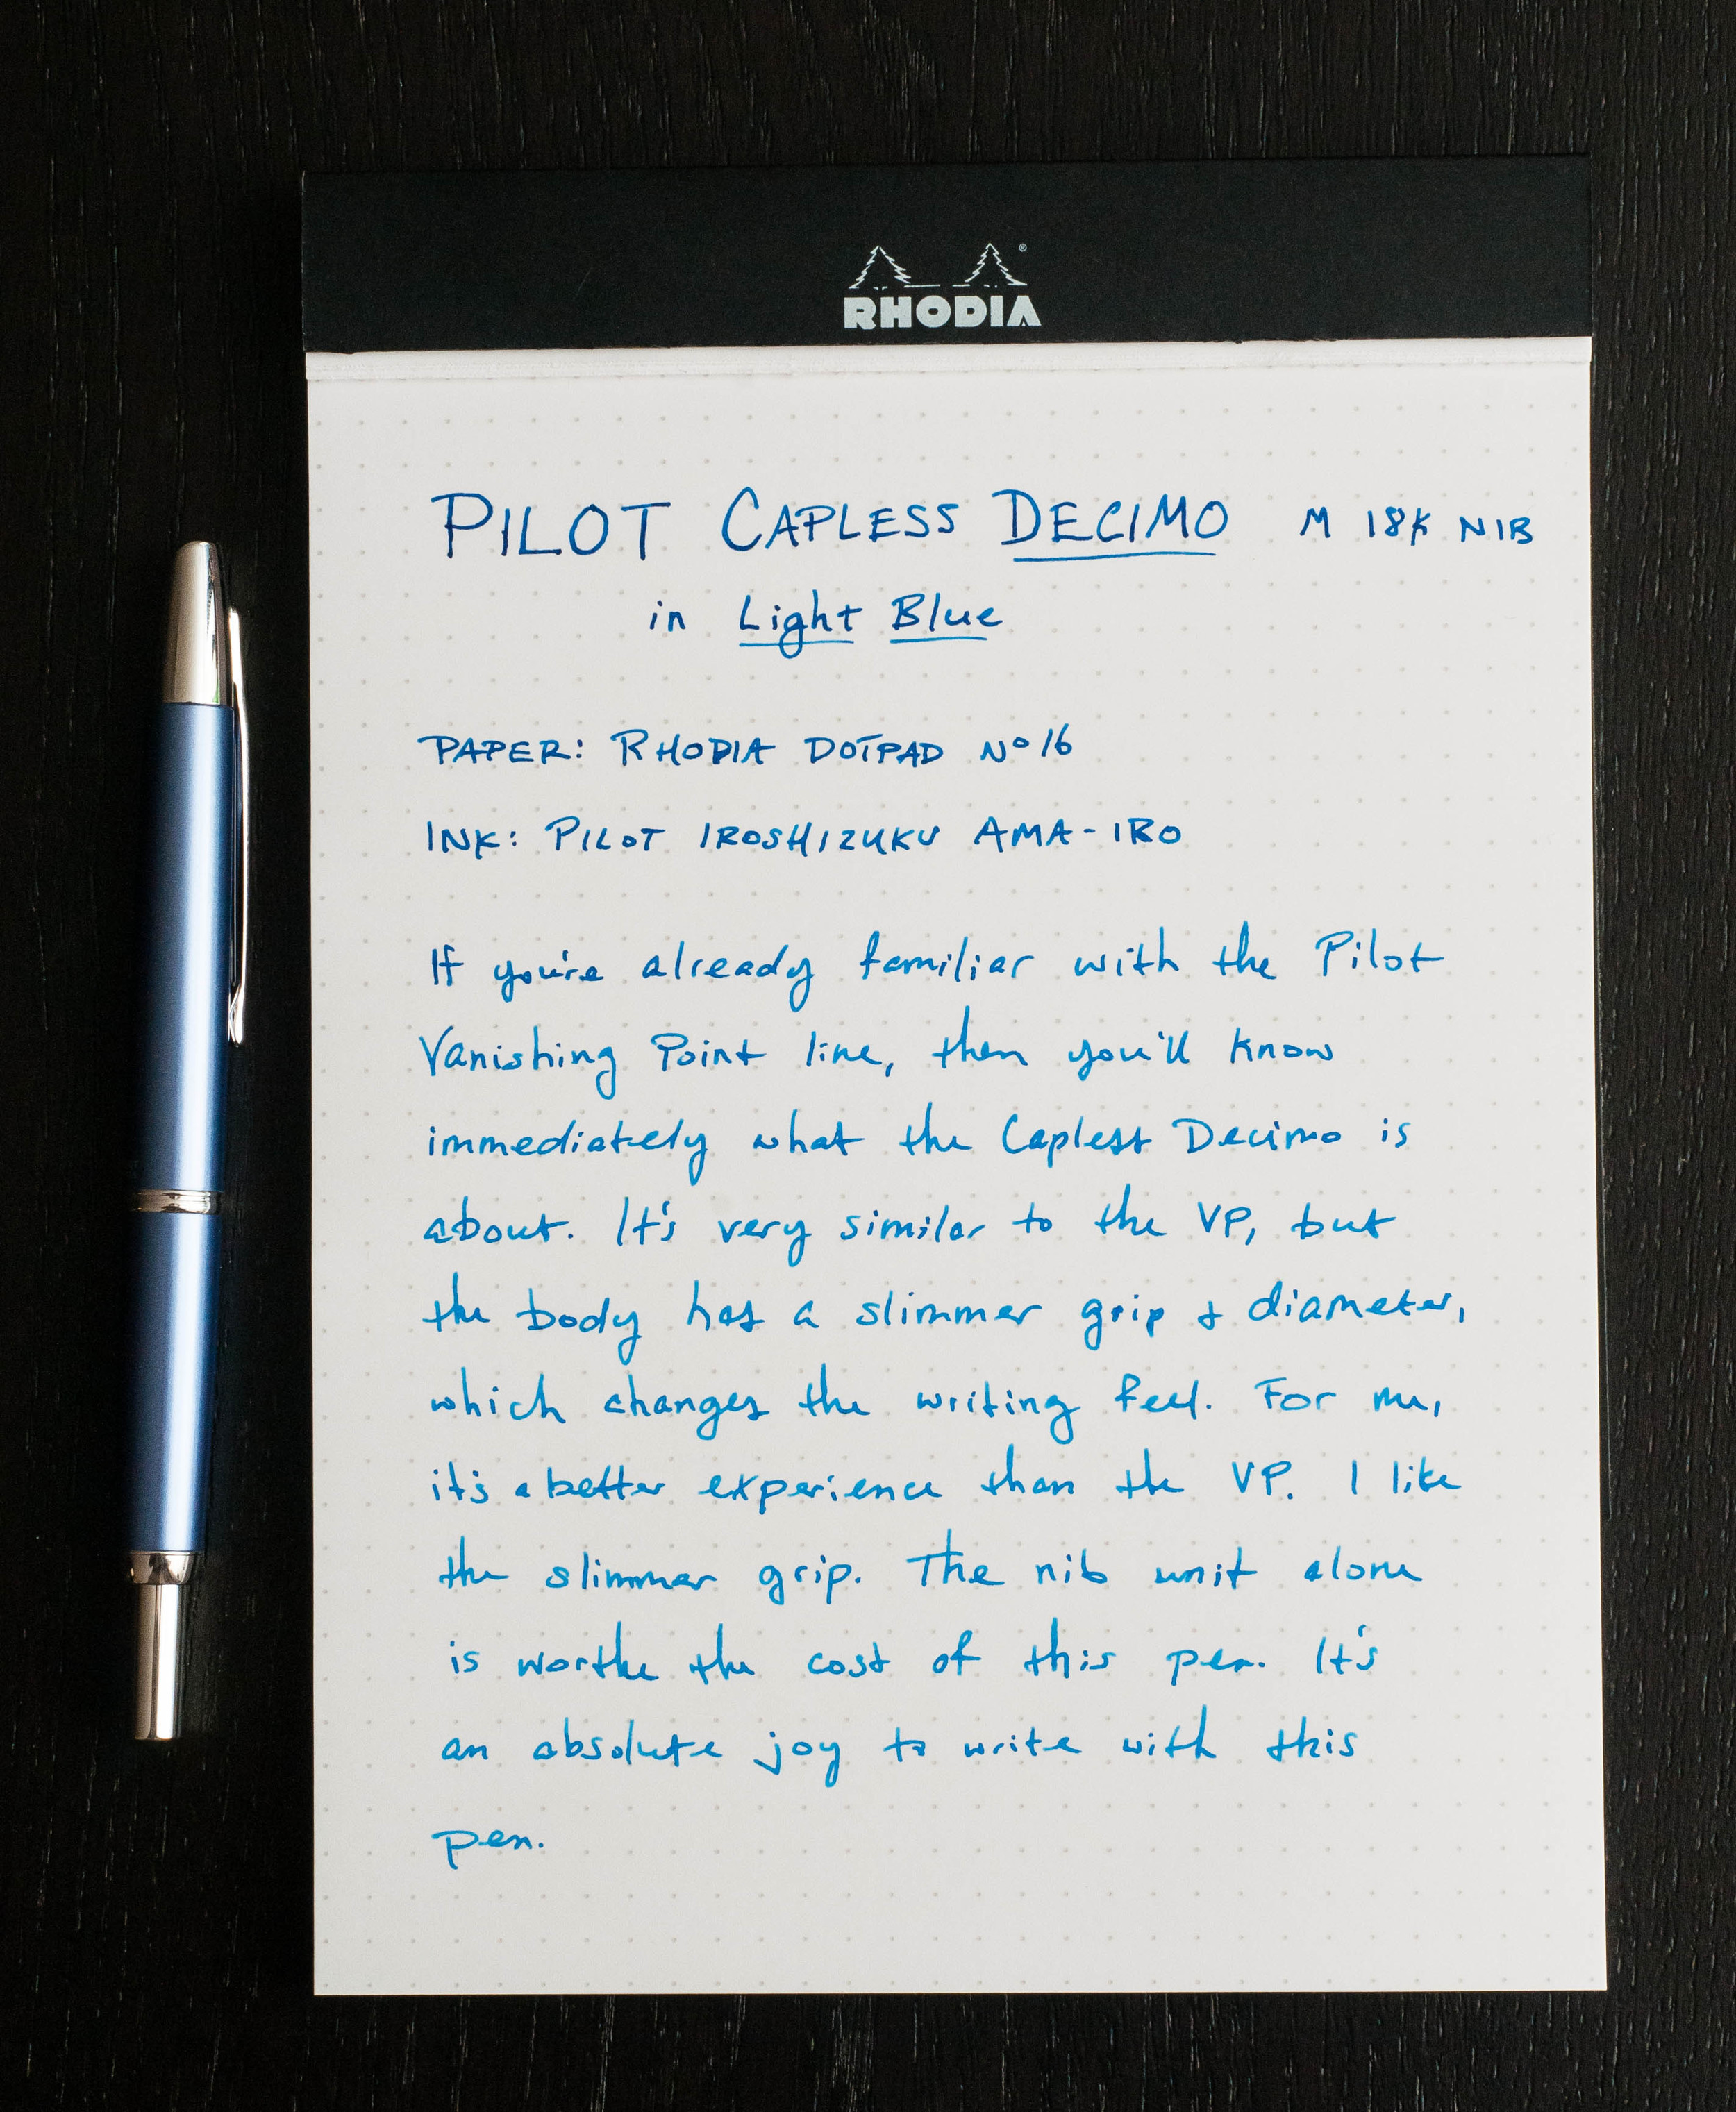 RHODIA
PILOT CAPLESS DECIMO M 18K NIB
in Light Blue
PAPER: RHODIA DOTPAD Nº 16
INK: PILOT IROSHIZUKU AMA-IRO
If you're already familiar with the Pilot
Vanishing Point line, then you'll know
immediately what the Capless Decimo is
about. It's very similar to the VP, but
the body has a slimmer grip & diameter,
which changes the writing feel. For me,
it's a better experience than the VP. I like
the slimmer grip. The nib unit alone
is worthe the cost of this pen. It's
an absolute joy to write with this
pen.